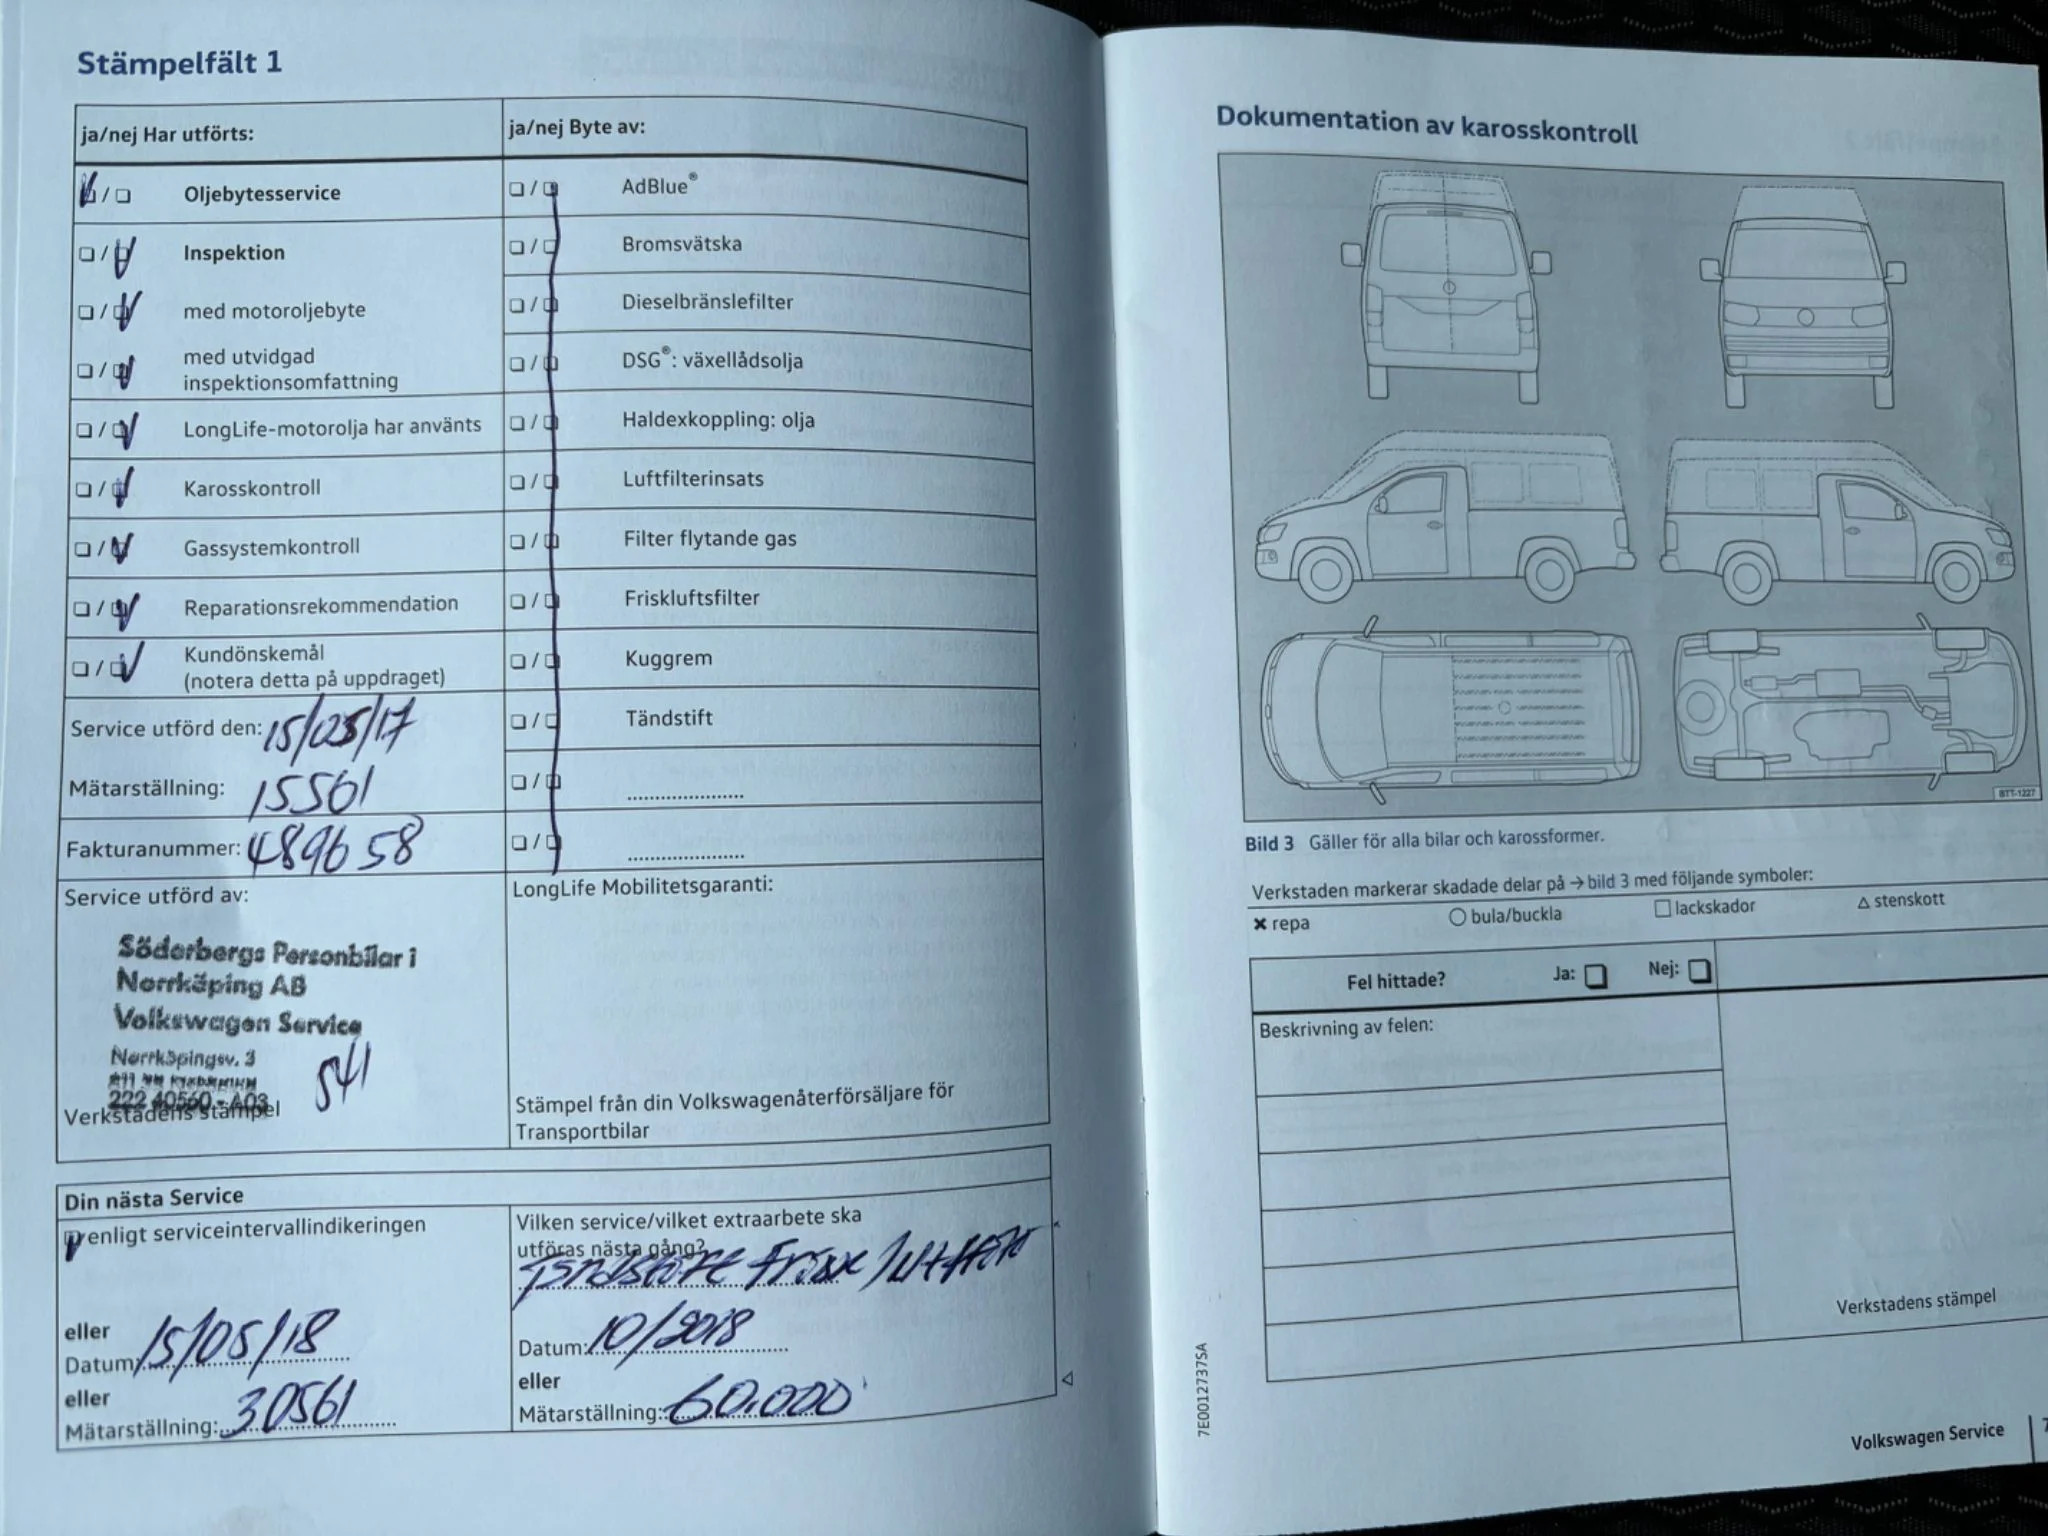 Stämpelfält 1
ja/nej Har utförts:
Oljebytesservice
Inspektion
med motoroljebyte
med utvidgad
inspektionsomfattning
LongLife-motorolja har använts
Karosskontroll
Gassystemkontroll
Reparationsrekommendation
Kundönskemål
(notera detta på uppdraget)
Service utförd den: 15/05/17
Mätarställning: 15561
Fakturanummer: 489658
Service utförd av:
Söderbergs Personbilar i
Norrköping AB
Volkswagen Service
Norrköpingsv. 3
222 40560 - A03
541
Verkstadens stämpel
ja/nej Byte av:
AdBlue®
Bromsvätska
Dieselbränslefilter
DSG®: växellådsolja
Haldexkoppling: olja
Luftfilterinsats
Filter flytande gas
Friskluftsfilter
Kuggrem
Tändstift
LongLife Mobilitetsgaranti:
Stämpel från din Volkswagenåterförsäljare för
Transportbilar
Din nästa Service
enligt serviceintervallindikeringen
eller
Datum: 15/05/18
eller
Mätarställning: 30561
Vilken service/vilket extraarbete ska
utföras nästa gång?
Datum: 10/2018
eller
Mätarställning: 60.000
Dokumentation av karosskontroll
BTT-1227
Bild 3 Gäller för alla bilar och karossformer.
Verkstaden markerar skadade delar på → bild 3 med följande symboler:
✖ repa ○ bula/buckla □ lackskador △ stenskott
Fel hittade? Ja: Nej:
Beskrivning av felen:
Verkstadens stämpel
7E0012737SA
Volkswagen Service